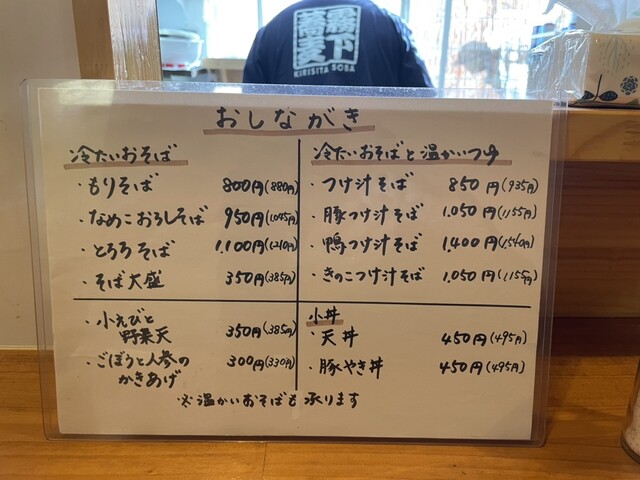 霧下蕎麦
KIRISITA SOBA
おしながき
冷たいおそば
・もりそば 800円(880円)
・なめこおろしそば 950円(1,045円)
・とろろそば 1,100円(1,210円)
・そば大盛 350円(385円)
冷たいおそばと温かいつゆ
・つけ汁そば 850円(935円)
・豚つけ汁そば 1,050円(1,155円)
・鴨つけ汁そば 1,400円(1,540円)
・きのこつけ汁そば 1,050円(1,155円)
・小えびと
野菜天 350円(385円)
・ごぼうと人参の
かきあげ 300円(330円)
小丼
・天丼 450円(495円)
・豚やき丼 450円(495円)
※温かいおそばも承ります